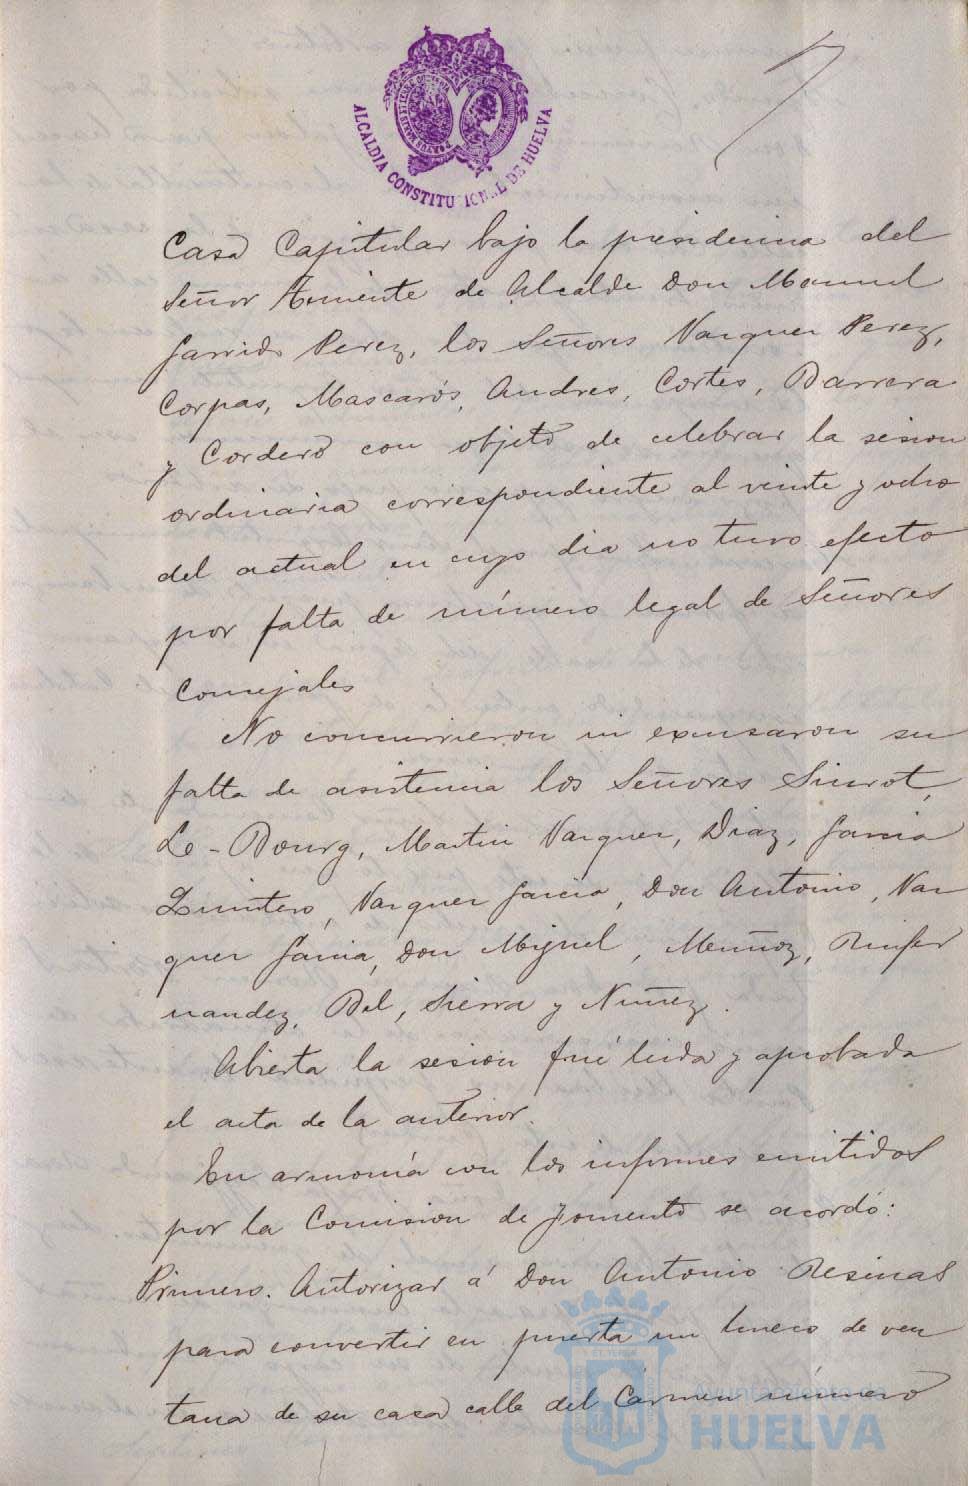 ALCALDIA CONSTITUCIONAL DE HUELVA
Casa Capitular bajo la presidencia del
Señor Teniente de Alcalde Don Manuel
Garrido Perez, los Señores Vazquez Perez,
Corpas, Mascarós, Andres, Cortés, Barrera
y Cordero con objeto de celebrar la sesion
ordinaria correspondiente al veinte y ocho
del actual en cuyo dia no tuvo efecto
por falta de número legal de Señores
Concejales
No concurrieron ni excusaron su
falta de asistencia los Señores Siurot,
Le-Bourg, Martin Vazquez, Diaz, Garcia
Quintero, Vazquez Garcia, Don Antonio, Vaz
quez Garcia, Don Miguel, Muñoz, Runfer
nandez, Bel, Sierra y Nuñez.
Abierta la sesion fué leida y aprobada
el acta de la anterior.
En armonía con los informes emitidos
por la Comision de Fomento se acordó:
Primero. Autorizar á Don Antonio Resinas
para convertir en puerta un hueco de ven
tana de su casa calle del Cármen número
Ayuntamiento de
HUELVA